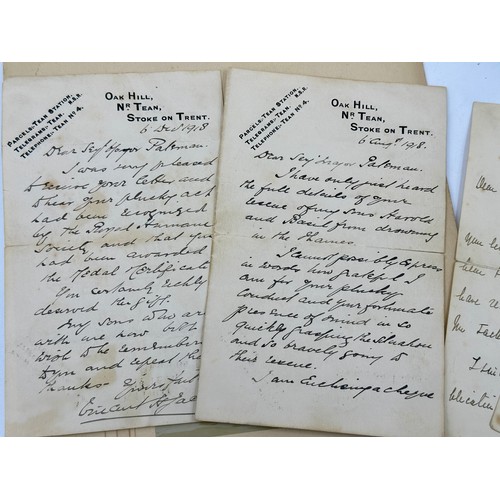 PARCELS-TEAN STATION,
N.S.R.
TELEGRAMS-TEAN.
TELEPHONE-TEAN Nº 4.
OAK HILL,
NR TEAN,
STOKE ON TRENT.
6 Dec 1918
Dear Sergt Major
I was very pleased
to receive your letter and
to hear your plucky act
had been recognized
by the Royal Humane
Society and that you
had been awarded
the Medal Certificate
You certainly richly
deserved the gift.
My sons who are
with me now both
wish to be remembered
to you and repeat their
thanks. Yours
Vincent
PARCELS-TEAN STATION,
N.S.R.
TELEGRAMS-TEAN.
TELEPHONE-TEAN Nº 4.
OAK HILL,
NR TEAN,
STOKE ON TRENT.
6 Augt 1918.
Dear Sergt Major
I have only just heard
the full details of your
rescue of my sons Harold
and Basil from drowning
in the Thames.
I cannot possibly express
in words how grateful I
am for your plucky
conduct and your fortunate
presence of mind in so
quickly grasping the situation
and so bravely going to
their rescue.
I am enclosing a cheque
Dear
have